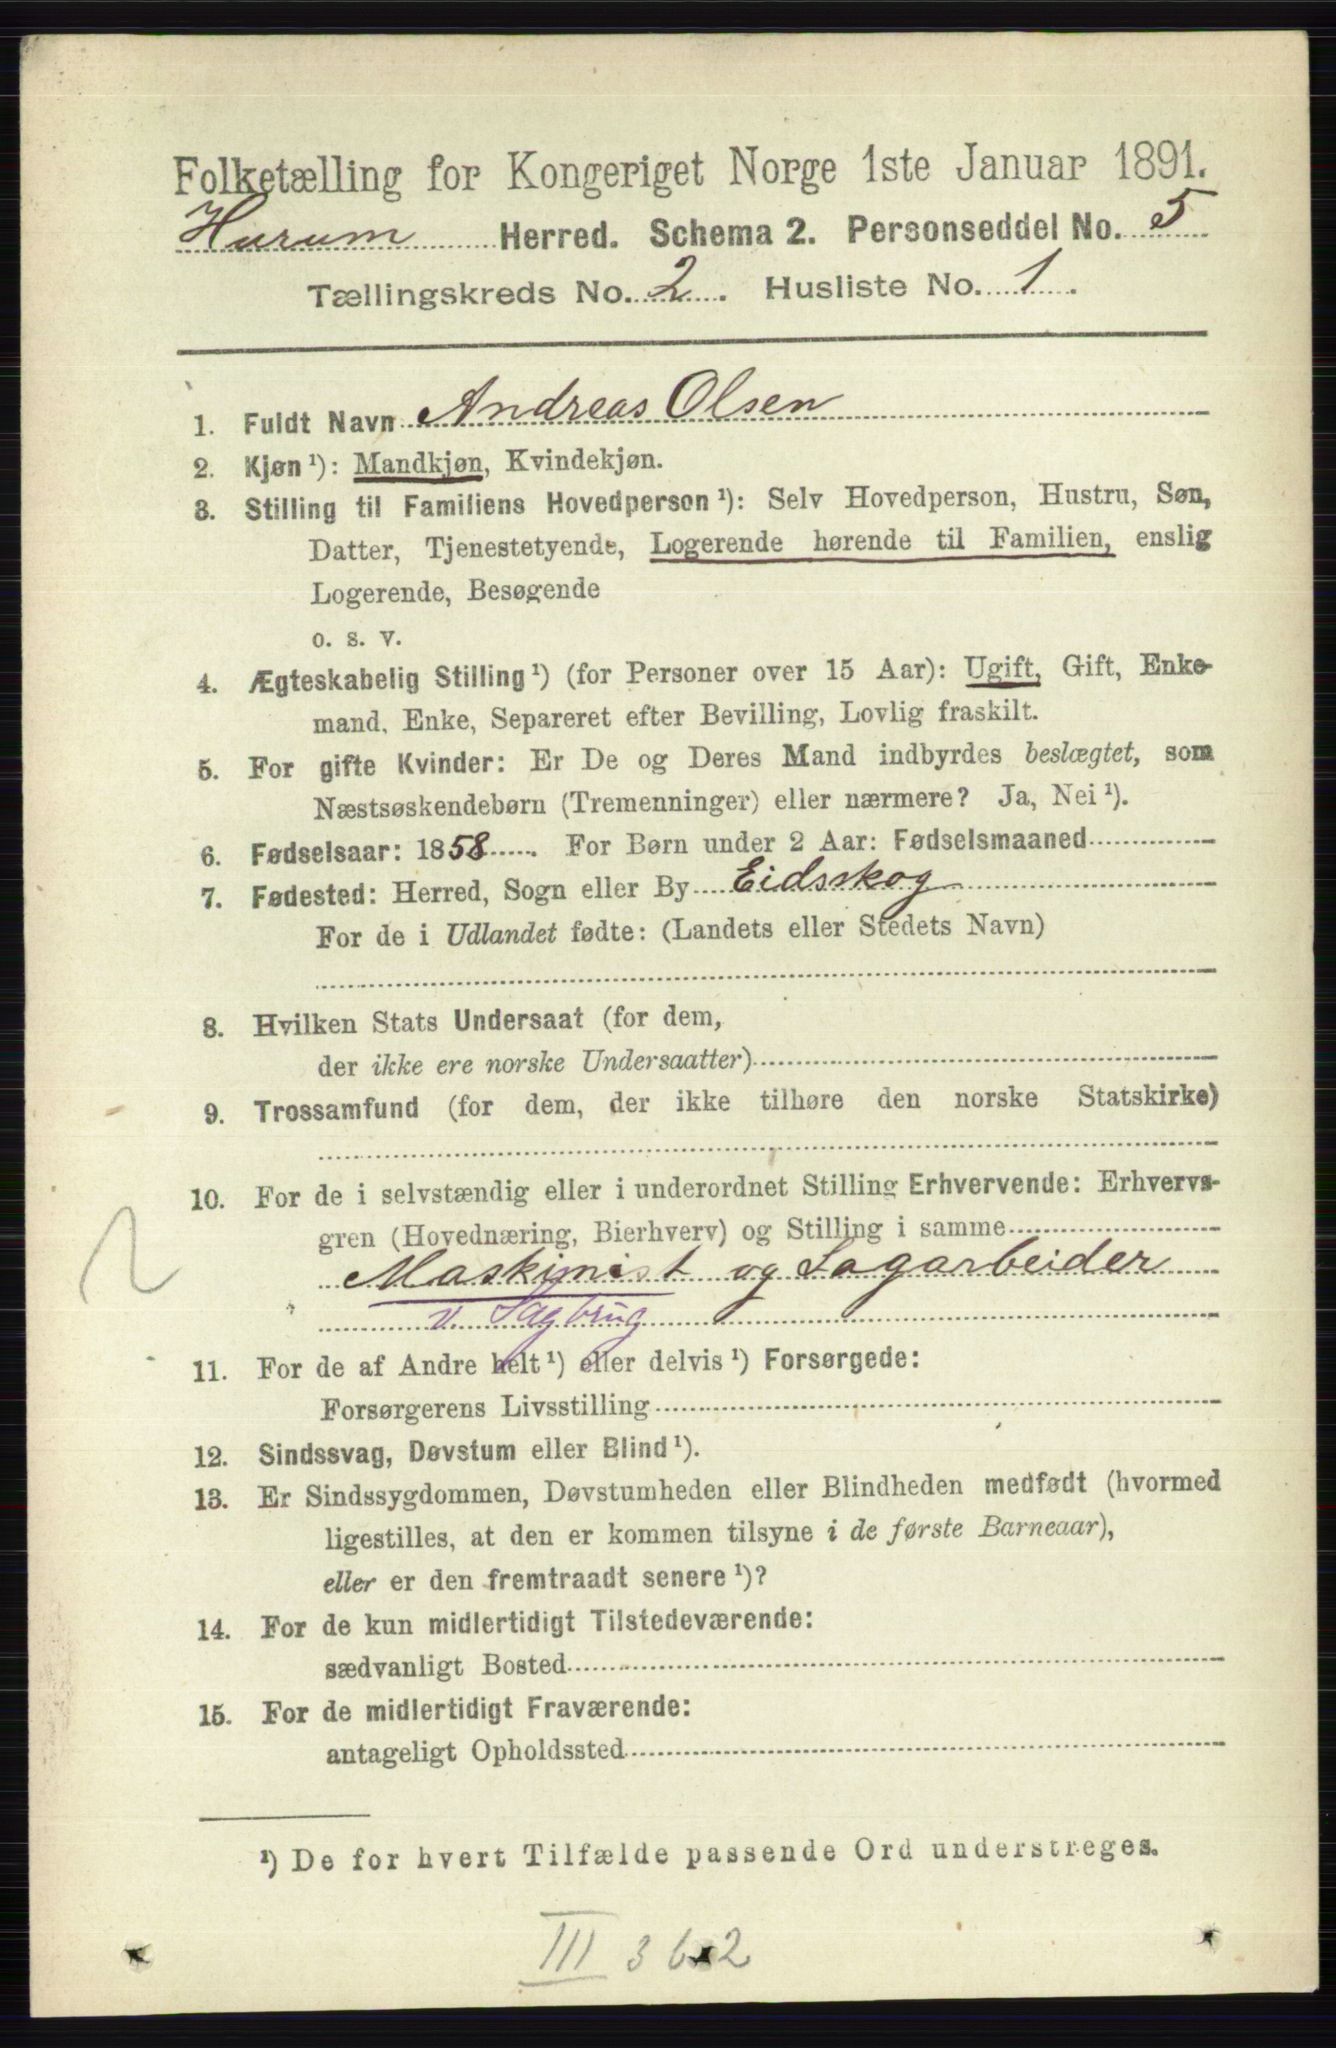 Folketælling for Kongeriget Norge 1ste Januar 1891.
Hurum Herred. Schema 2. Personseddel No. 5
Tællingskreds No. 2. Husliste No. 1.
1. Fuldt Navn Andreas Olsen
2. Kjøn ¹): Mandkjøn, Kvindekjøn.
3. Stilling til Familiens Hovedperson ¹): Selv Hovedperson, Hustru, Søn,
Datter, Tjenestetyende, Logerende hørende til Familien, enslig
Logerende, Besøgende
o. s. v.
4. Ægteskabelig Stilling ¹) (for Personer over 15 Aar): Ugift, Gift, Enke-
mand, Enke, Separeret efter Bevilling, Lovlig fraskilt.
5. For gifte Kvinder: Er De og Deres Mand indbyrdes beslægtet, som
Næstsøskendebørn (Tremenninger) eller nærmere? Ja, Nei ¹).
6. Fødselsaar: 1858. For Børn under 2 Aar: Fødselsmaaned
7. Fødested: Herred, Sogn eller By Eidsskog
For de i Udlandet fødte: (Landets eller Stedets Navn)
8. Hvilken Stats Undersaat (for dem,
der ikke ere norske Undersaatter)
9. Trossamfund (for dem, der ikke tilhøre den norske Statskirke)
10. For de i selvstændig eller i underordnet Stilling Erhvervende: Erhvervs-
gren (Hovednæring, Bierhverv) og Stilling i samme
Maskinist og Sagarbeider
v. Sagbrug
2
11. For de af Andre helt ¹) eller delvis ¹) Forsørgede:
Forsørgerens Livsstilling
12. Sindssvag, Døvstum eller Blind ¹).
13. Er Sindssygdommen, Døvstumheden eller Blindheden medfødt (hvormed
ligestilles, at den er kommen tilsyne i de første Barneaar),
eller er den fremtraadt senere ¹)?
14. For de kun midlertidigt Tilstedeværende:
sædvanligt Bosted
15. For de midlertidigt Fraværende:
antageligt Opholdssted
¹) De for hvert Tilfælde passende Ord understreges.
III 3 6 2